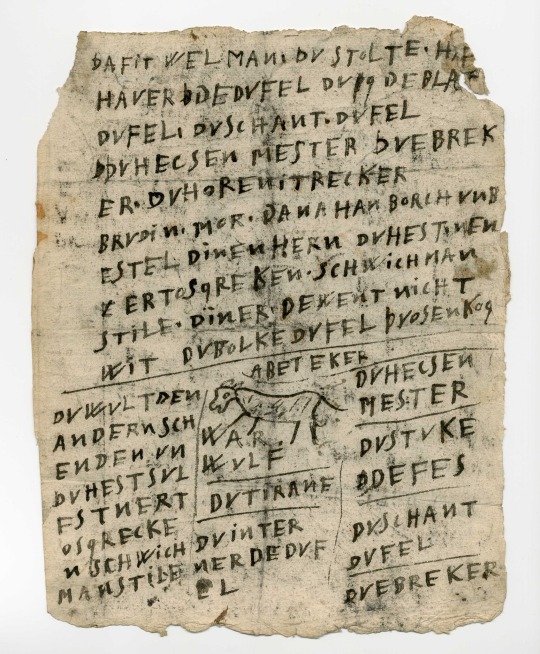 DAFIT WELMAN. DV STOLTE. HAF
HAVER DDEDVFEL DV19 DEPLAT
DVFEL. DVSCHANT. DVFEL
DVHECSEN MESTER DVEBREK
ER. DVHOREN iTRECKER
BRVDiN. MOR. DANAHAN BORCH VNB
ESTEL DiNEN HERN DVHESTiNEN
ERTOSqREKEN. SCHWiCHMAN
STiLE. DiNER. DEWENT NiCHT
WiT DVBOLKEDVFEL DVOSENKOq
ABETEKER
DVWVLTDEN
ANDERNSCH
ENDEN. VN
DVHESTSVL
FSTNERT
OSqRECKE
N SCHWiCH
MANSTiLE
WAR
WVLF
DVTiRANE
DViNTER
NERDEDVF
EL
DVHECSEN
MESTER
DVSTVKE
DDEFES
DVSCHANT
DVFEL
DVEBREKER